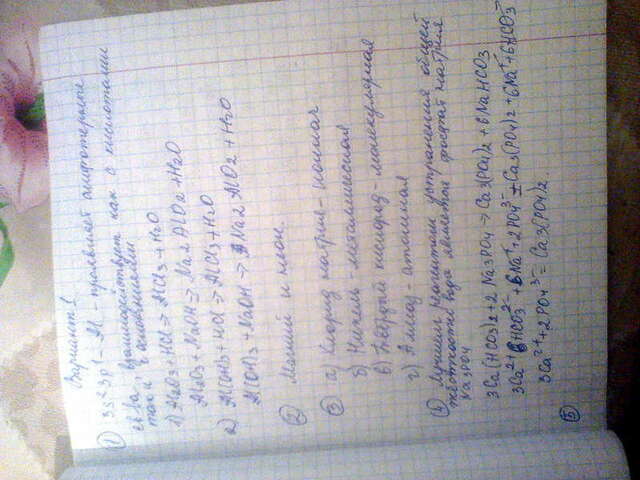 Вариант 1
① 3s²3p¹ - Al - проявляет амфотерные
св-ва, взаимодействует как с кислотами
так и с основаниями
1) Al2O3 + HCl → AlCl3 + H2O
Al2O3 + NaOH → Na2AlO2 + H2O
2) Al(OH)3 + HCl → AlCl3 + H2O
Al(OH)3 + NaOH → Na2AlO2 + H2O
② Магний и неон.
③ а) Хлорид натрия - ионная
б) Никель - металлическая
в) Твёрдый кислород - молекулярная
г) Алмаз - атомная
④ Лучшим реагентом устранения общей
жёсткости воды является фосфат натрия
Na3PO4
3Ca(HCO3)2 + 2 Na3PO4 → Ca3(PO4)2 + 6NaHCO3
3Ca²⁺ 6HCO3²⁻ + 6Na⁺ + 2PO4³⁻ = Ca3(PO4)2 + 6Na⁺ + 6HCO3⁻
3Ca²⁺ + 2PO4³⁻ = Ca3(PO4)2.
⑤